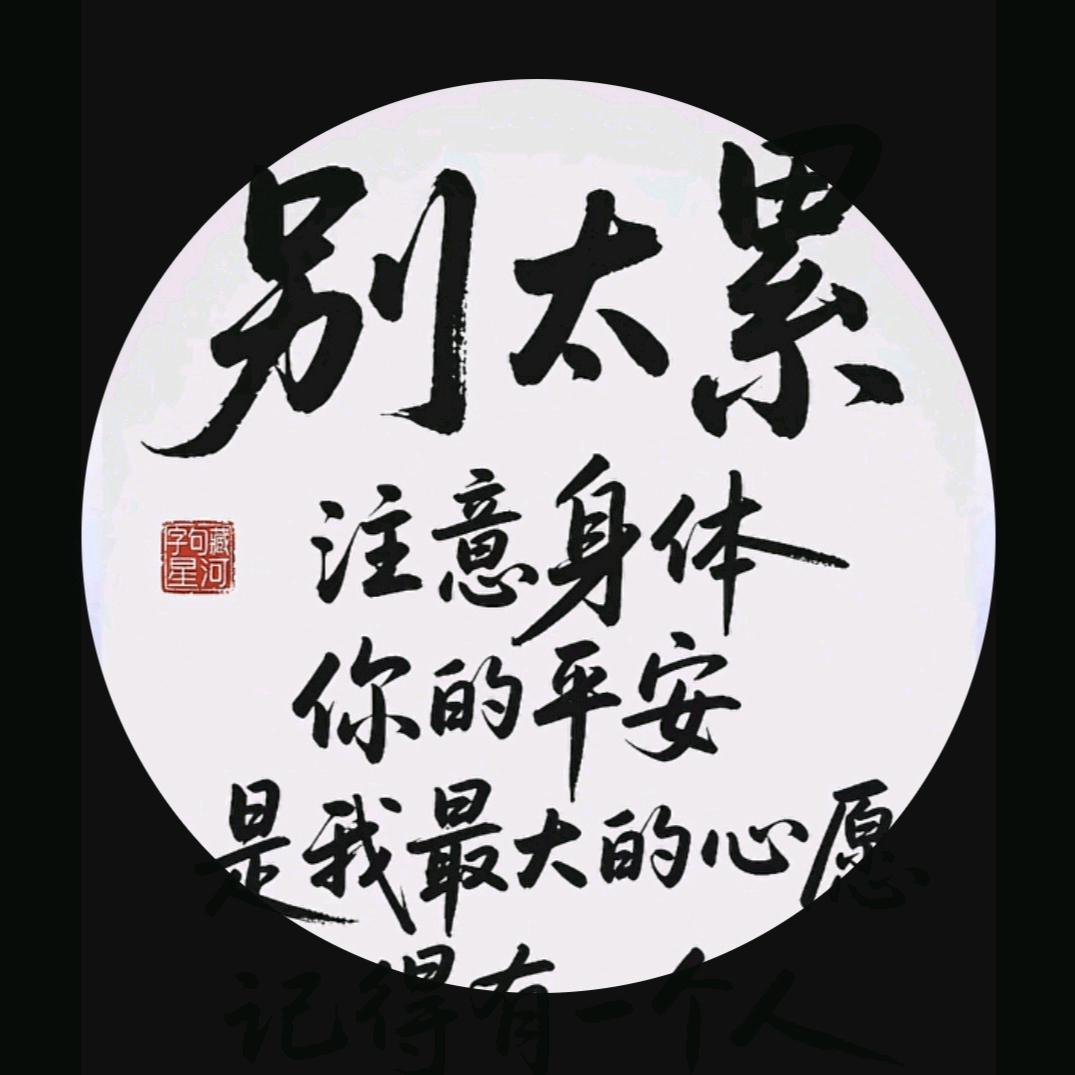 别太累
注意身体
藏河
字句星
你的平安
是我最大的心愿
记得有一个人